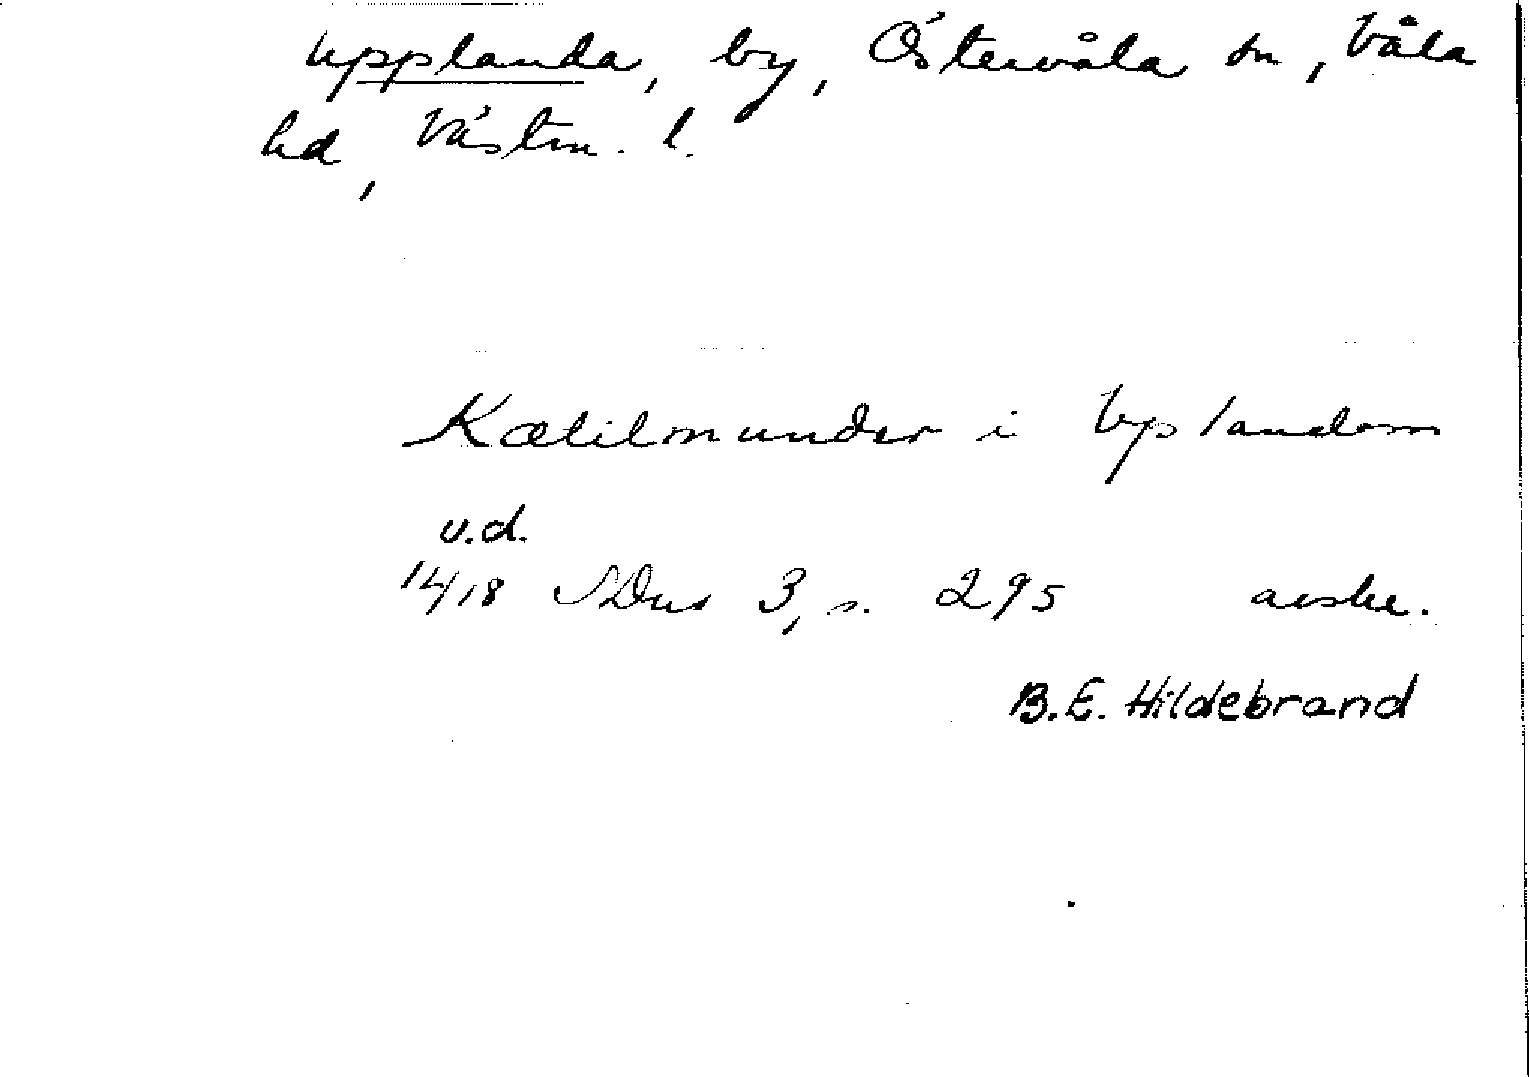 Upplanda, by, Östervåla sn, Våla
hd, Västm. l.
Kætilmunder i Vplandom
u.d.
1418 SDns 3, s. 295 avskr.
B.E. Hildebrand